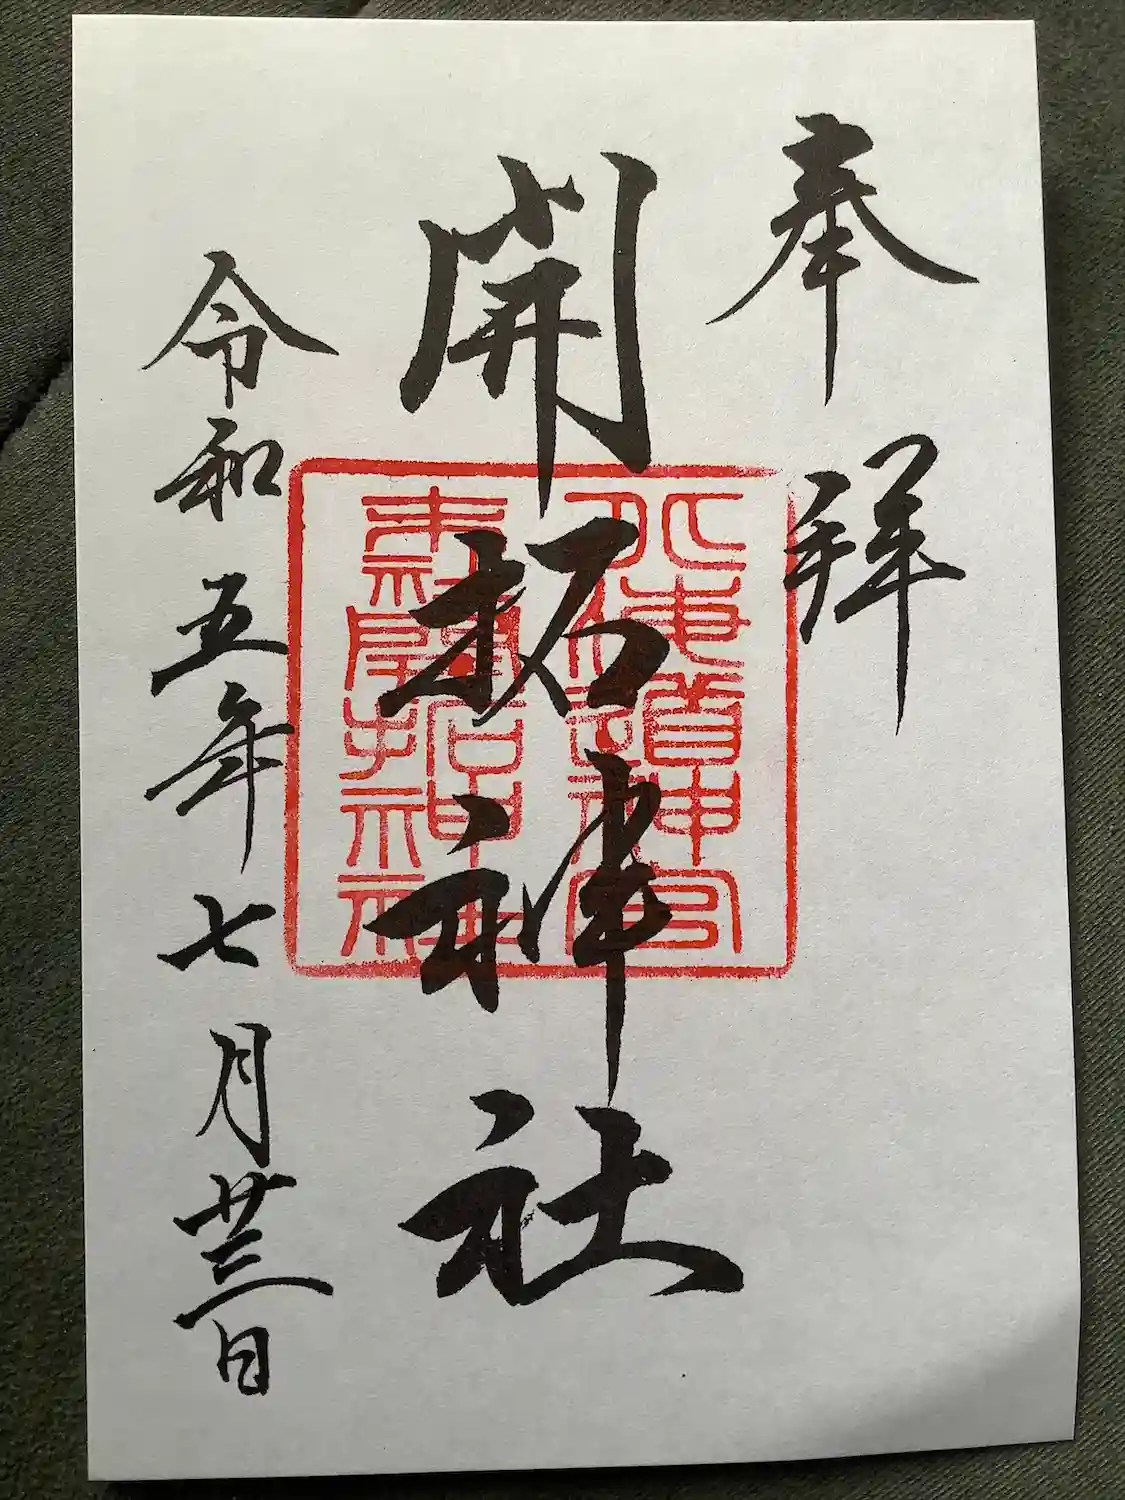 奉拝
開拓神社
北海道神宮
末社開拓神社
令和五年七月廿三日